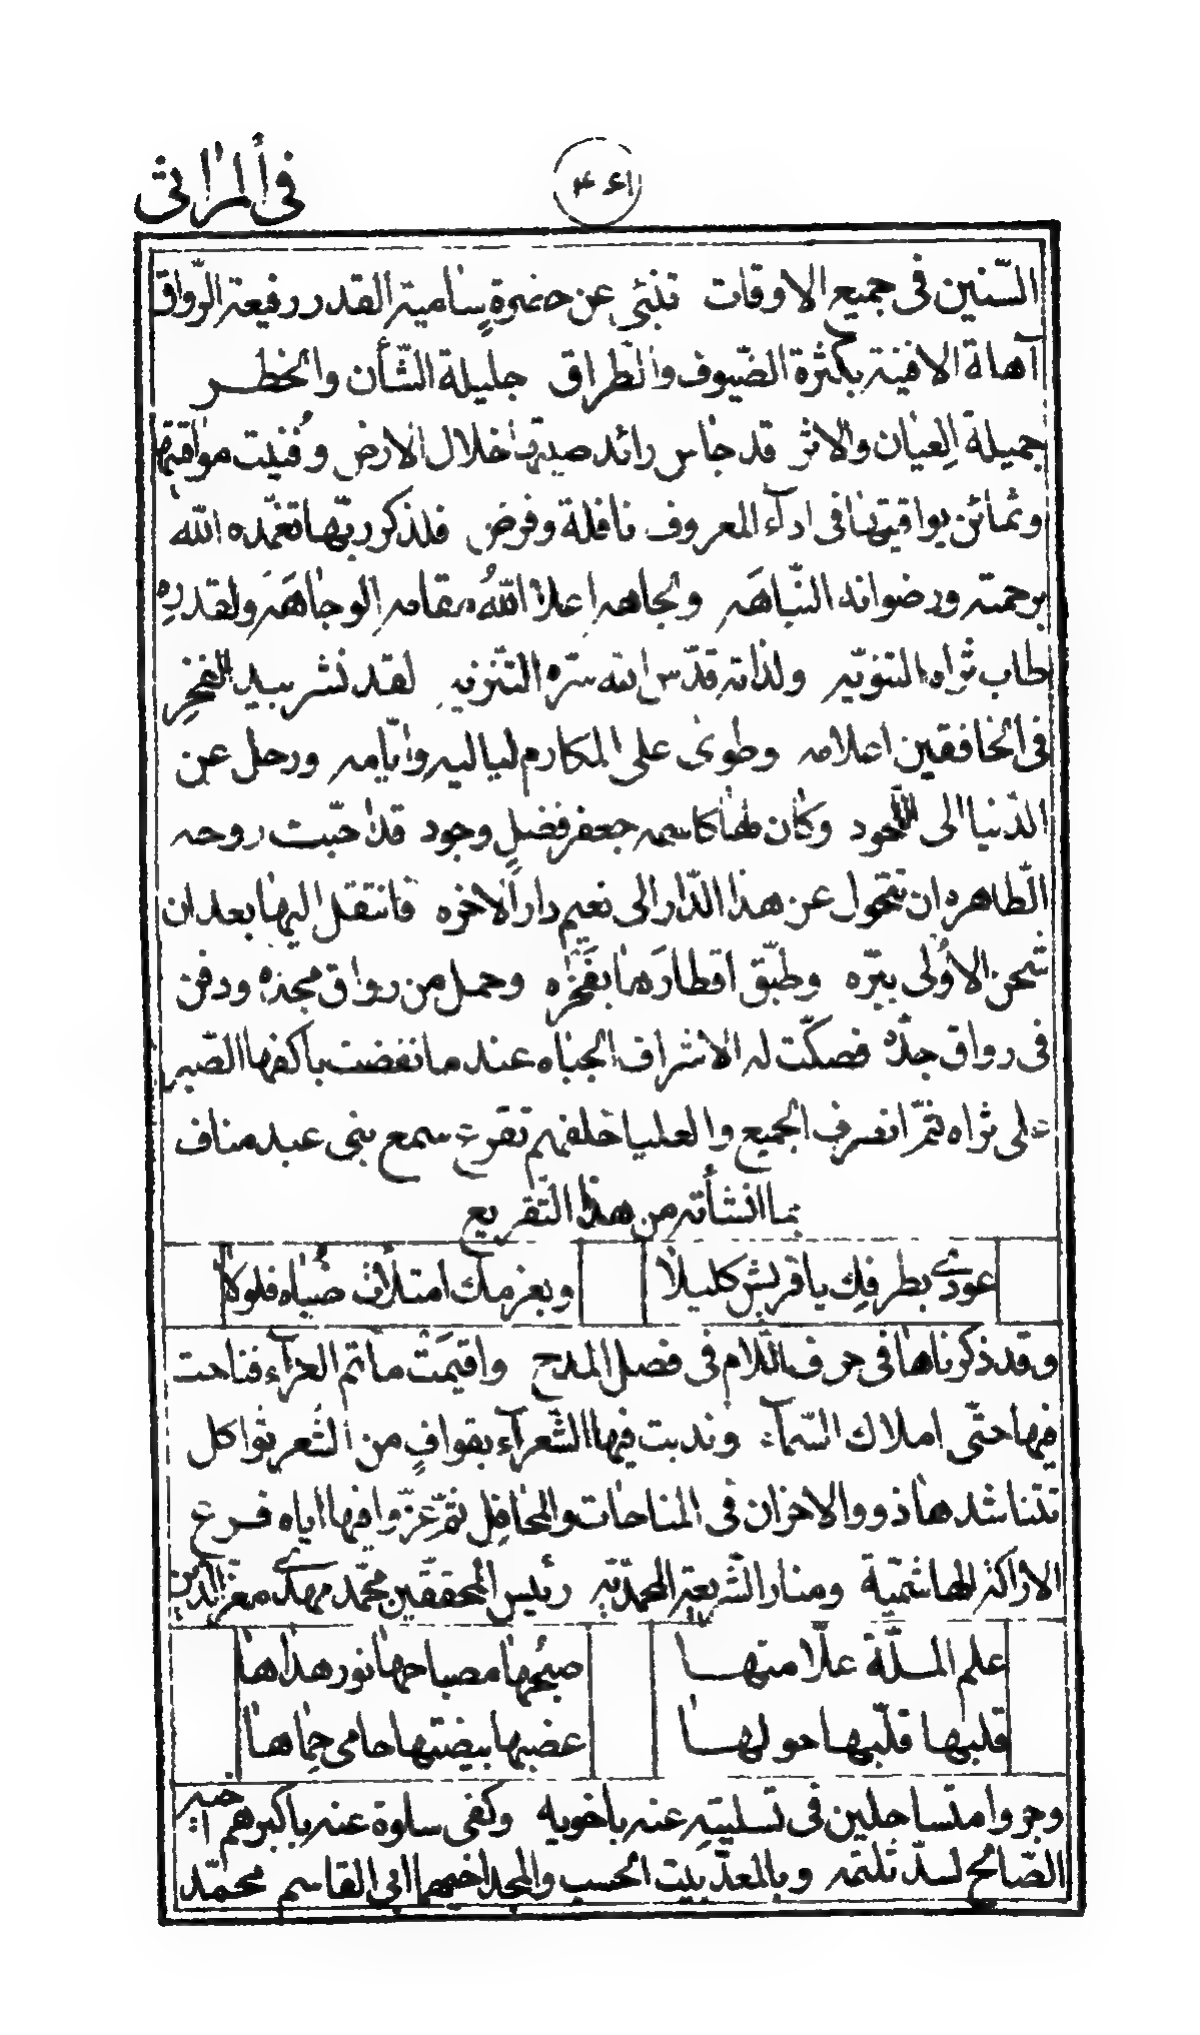 في المراثي
٤٦١
السّنين في جميع الاوقات تنبئ عن حضرة سامية القدر رفيعة الرّواق
آهلة الافنية بكثرة الضّيوف والطّراق جليلة الشّأن والخطر
جميلة العيان والاثر قد جاس رائد صيتها خلال الارض وفنيت مواقيتها
وثمائن يواقيتها في ادآء المعروف نافلة وفرض فلذكر ربّها تغمّده الله
برحمته ورضوانه النّباهه ولجاهه اعلا الله مقامه الوجاهه ولقدره
طاب ثراه التنويه ولذاته قدّس الله سرّه التّنزيه لقد نشر بيد الفخر
في الخافقين اعلامه وطوى على المكارم لياليه وايّامه ورحل عن
الدّنيا الى اللحود وكان لها كاسمه جعفر فضل وجود قد احبّت روحه
الطّاهره ان تتحول عن هذا الدّار الى نعيم دار الآخره فانتقل اليها بعد ان
شحن الأولى ببرّه وطبّق اقطارها بفخره وحمل من رواق مجده ودفن
في رواق جدّه فصكّت له الاشراف الجباه عند ما نفضت باكفها الصّبر
على ثراه ثمّ انصرف الجميع والعليا خلفهم تقرع سمع بني عبد مناف
بما انشأته من هذا التّقريع
عودي بطرفك يا قريش كليلا وبعزمك امتلأت ضباه فلولا
وقد ذكرناها في حرف اللّام في فصل المدح واقيمت مأتم العزآء فناحت
فيها حتّى املاك السّمآء وندبت فيها الشّعرآء بقوافٍ من الشعر ثواكل
تتناشدها ذووالاحزان في المناحات والمحافل ثمّ عزّوا فيها اياه فرع
الاراكة الهاشميّة ومنار الشّريعة المحمديّة رئيس المحققين محمّد مهدي معز الدين
علم الملّة علّامتها صبحها مصباحها نور هداها
قلبها قلّبها حولها عضبها بيضتها حامي حماها
وجروا متساجلين في تسليته عنه باخويه وكفى سلوة عنه باكبرهم
الصّالح لسدّ ثلمته وبالمعدّ بيت الحسب والمجد اخيهما ابي القاسم محمّد